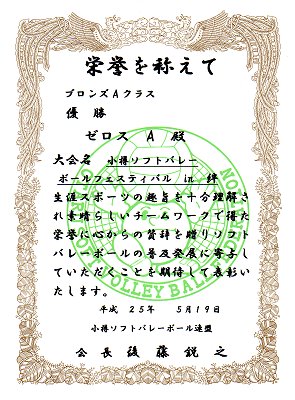 栄誉を称えて
ブロンズAクラス
優勝
ゼロス A 殿
大会名 小樽ソフトバレー
ボールフェスティバル in 絆
生涯スポーツの趣旨を十分理解さ
れ素晴らしいチームワークで得た
栄誉に心からの賛辞を贈りソフト
バレーボールの普及発展に寄与し
ていただくことを期待して表彰い
たします。
平成 25年 5月19日
小樽ソフトバレーボール連盟
会長 後藤鋭之
VOLLEY BALL